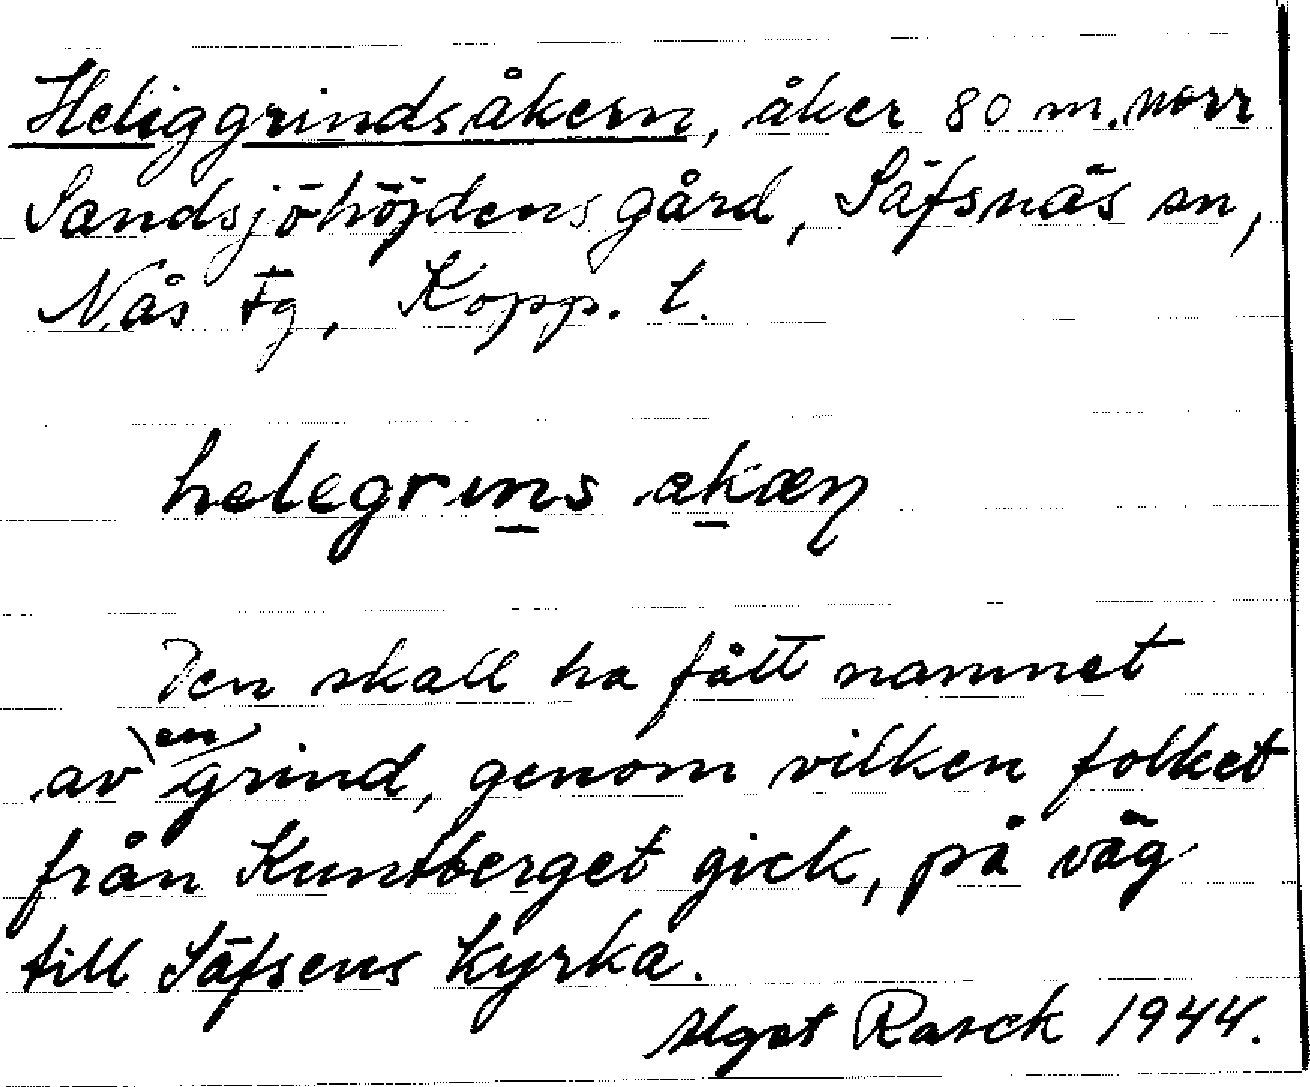 Heliggrindsåkern, åker 80 m. norr
Sandsjöhöjdens gård, Säfsnäs sn,
Nås Fg, Kopp. l.
helegrins akæn
Den skall ha fått namnet
av en grind, genom vilken folket
från Kuntberget gick, på väg
till Säfsens kyrka.
Rasck 1944.